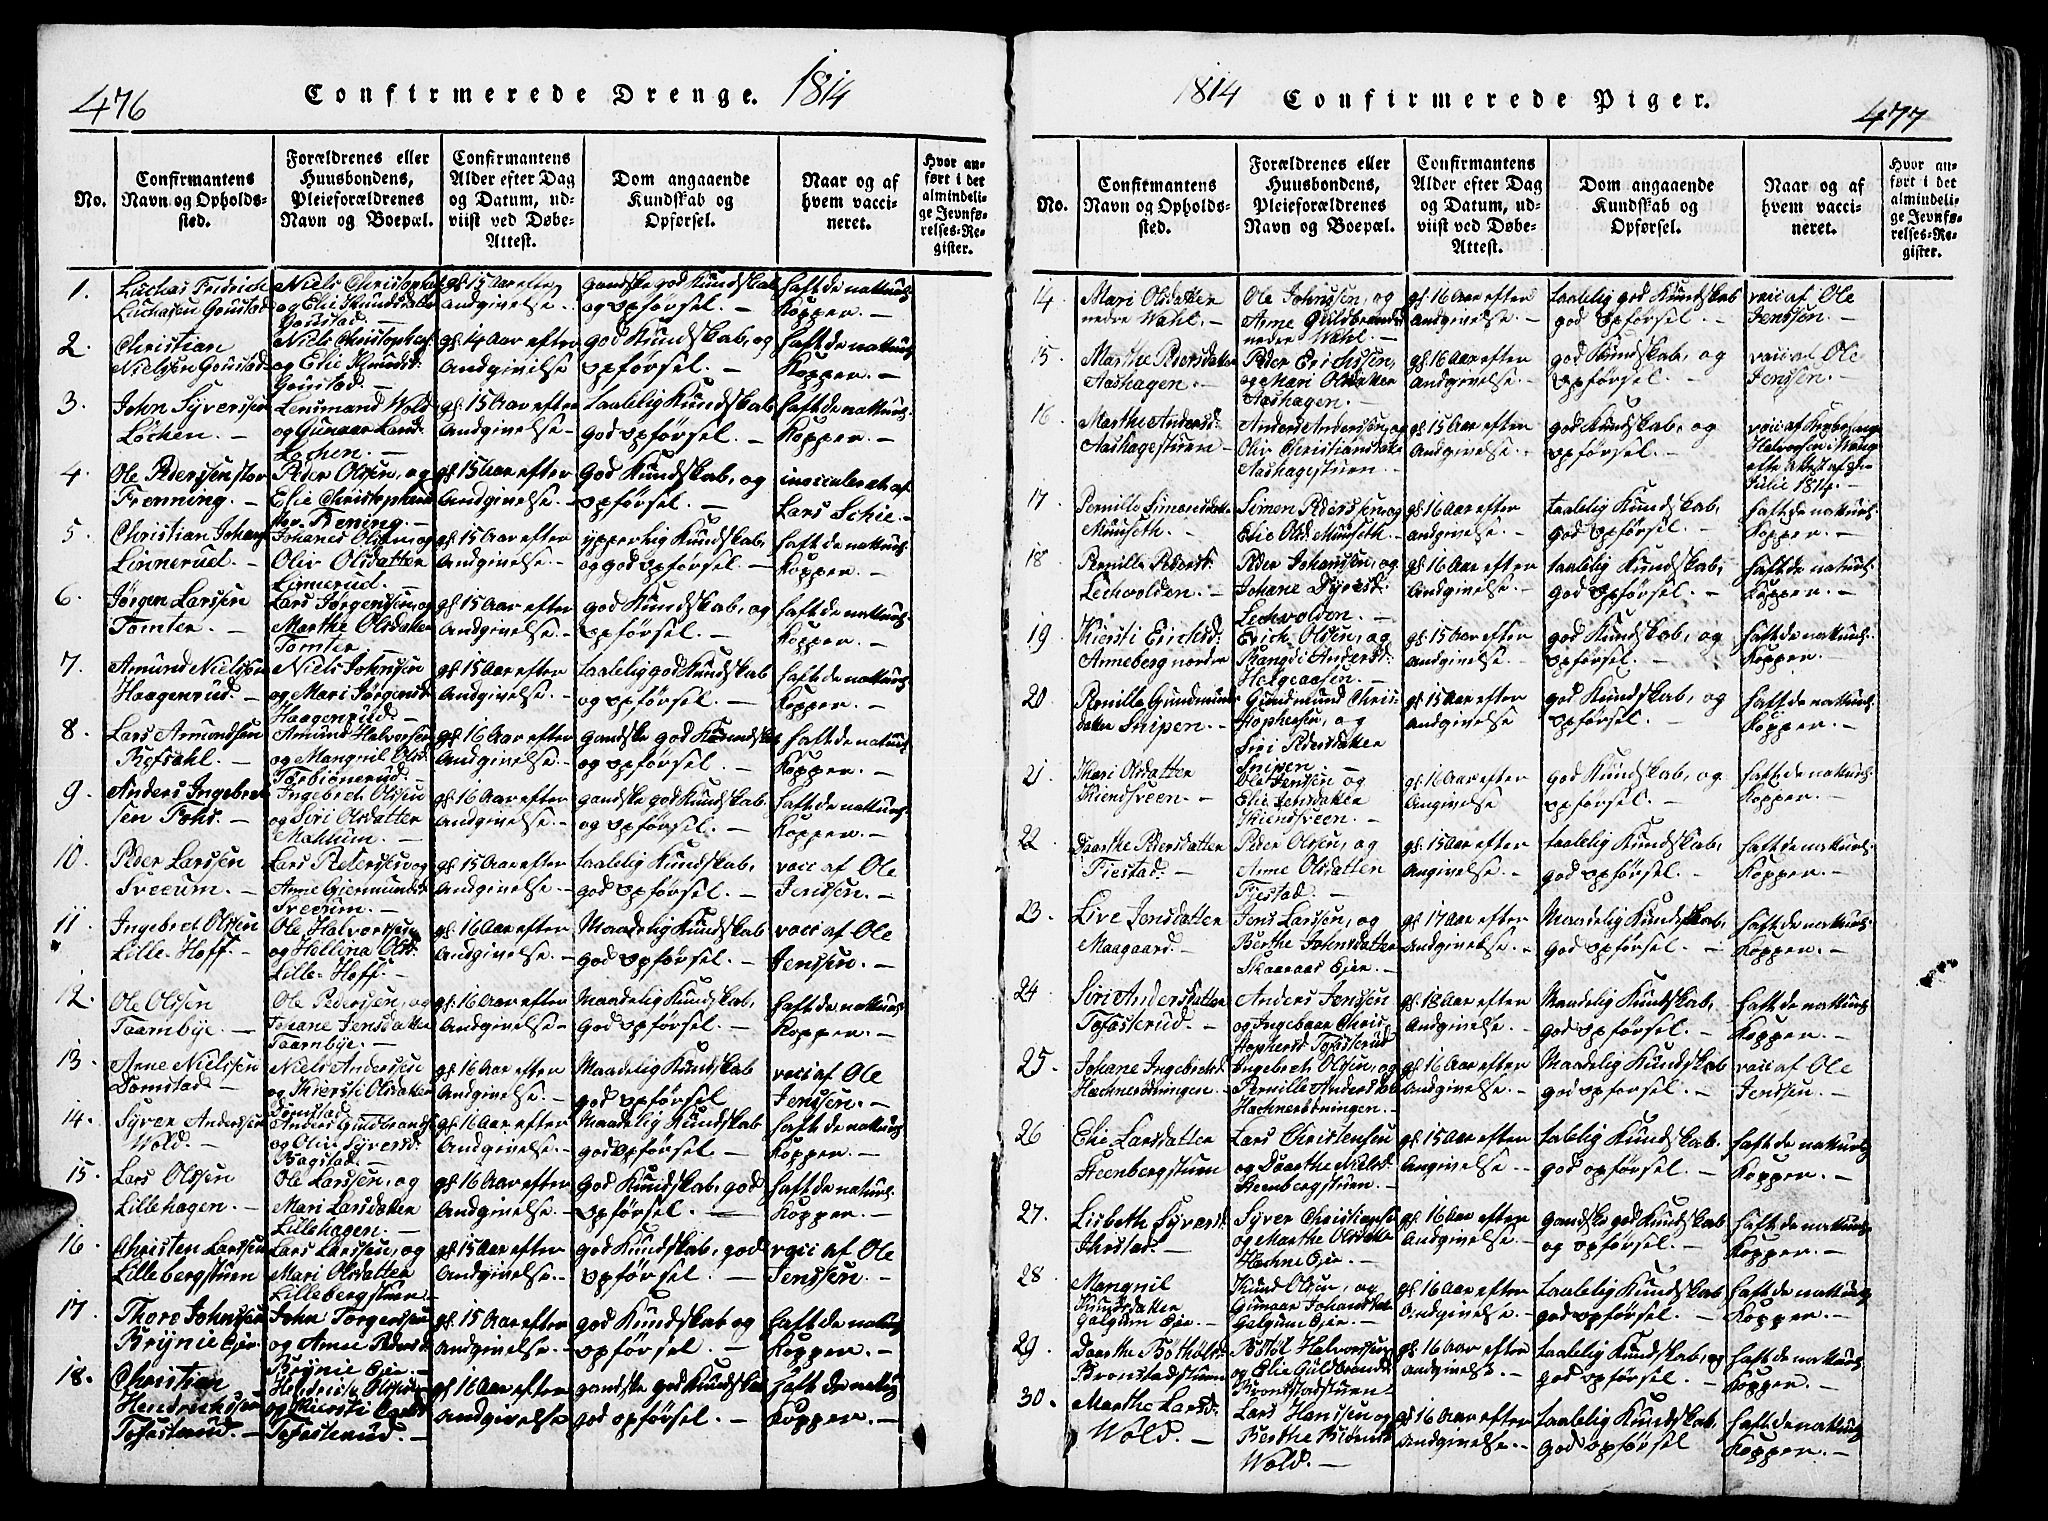 476
Confirmerede Drenge. 1814
No.
Confirmantens Navn og Opholds-sted.
Forældrenes eller Huusbondens, Pleieforældrenes Navn og Boepæl.
Confirmantens Alder efter Dag og Datum, ud-viist ved Døbe-Attest.
Dom angaaende Kundskab og Opførsel.
Naar og af hvem vacci-neret.
Hvor an-ført i det almindeli-ge Jevnfø-relses-Re-gister.
1. Luchas Fredrich Luchasen Goustad
Niels Christophs og Elie Knudsdatter Goustad. —
gl. 15 Aar efter Andgivelse. —
gandske god Kundskab og opførsel. —
haft de naturl: Kopper. —
2. Christian Nielsen Goustad
Niels Christophs og Elie Knudsd: Goustad. —
gl. 14 Aar efter Andgivelse
god Kundskab, og opførsel. —
haft de naturl: Kopper. —
3. John Syversen Løchen. —
Lensmand Wold og Gunaar Løchen. —
gl. 15 Aar efter Andgivelse —
taalelig Kundskab god opførsel. —
haft de naturl: Kopper. —
4. Ole Pederssen stor Frenning. —
Peder Olsen, og Elie Christophers stor Frening. —
gl. 15 Aar efter Andgivelse. —
God Kundskab, og opførsel. —
inoculeret af Lars Schie. —
5. Christian Johans Linnerud. —
Johanes Olsen, og Oliv Olsdatter Linnerud. —
gl. 15 Aar efter Andgivelse. —
ypperlig Kundskab, og god opførsel. —
haft de naturl: Kopper. —
6. Jørgen Larssen Tomter. —
Lars Jørgenssen, og Marthe Olsdatter Tomter. —
gl. 15 Aar efter Andgivelse. —
god Kundskab, og opførsel. —
haft de naturl: Kopper. —
7. Amund Nielssen Haagenrud. —
Niels Johnsen og Mari Jørgensd: Haagenrud. —
gl. 15 Aar efter Andgivelse. —
taalelig god Kundskab og opførsel. —
haft de naturl: Kopper. —
8. Lars Amundsen Refsahl. —
Amund Halvorsen og Mangnil Olsd: Torbiønerud. —
gl. 16 Aar efter Andgivelse. —
gandske god Kundskab og opførsel. —
haft de naturl: Kopper. —
9. Anders Ingebret sen Fohs. —
Ingebreth Olssen og Siri Olsdatter Mælum. —
gl. 16 Aar efter Andgivelse. —
gandske god Kundskab og opførsel. —
haft de naturl: Kopper. —
10. Peder Larssen Sveeum. —
Lars Peders og Anne Giermundsd Sveeum. —
gl. 15 Aar efter Andgivelse. —
taalelig Kundskab, god opførsel. —
vacc af Ole Jenssen. —
11. Ingebret Olssen Lille-Hoff. —
Ole Halvorssen og Hellina Olsd: Lille-Hoff. —
gl. 16 Aar efter Andgivelse. —
Maadelig Kundskab god opførsel. —
vacc af Ole Jenssen. —
12. Ole Olssen Taarnbye. —
Ole Pederssen, og Johane Jensdatter Taarnbye. —
gl. 16 Aar efter Andgivelse. —
Maadelig Kundskab, god opførsel. —
haft de naturl: Kopper. —
13. Arne Nielssen Domstad —
Niels Andersen og Kiersti Olsdatter Domstad
gl. 16 Aar efter Andgivelse. —
Maadelig Kundskab god opførsel
vacc af Ole Jenssen. —
14. Syver Anderssen Wold. —
Anders Gudbrands og Oliv Syversd: Bagstad. —
gl. 16 Aar efter Andgivelse. —
Maadelig Kundskab god opførsel —
haft de naturl: Kopper. —
15. Lars Olssen Lillehagen. —
Ole Larssen, og Mari Larsdatter Lillehagen. —
gl. 16 Aar efter Andgivelse. —
God Kundskab, god opførsel. —
haft de naturl: Kopper. —
16. Christen Larssen Lillebergstuen
Lars Larssen, og Mari Olsdatter Lillebergstuen —
gl. 15 Aar efter Andgivelse. —
god Kundskab, god opførsel. —
vacc af Ole Jenssen. —
17. Thore Johnssen Brynie Ejer. —
John Torgerssen og Anne Pedersd Brynie Ejer. —
gl. 15 Aar efter Andgivelse. —
god Kundskab og opførsel. —
haft de naturl: Kopper. —
18. Christian Hendrichsen Tofasterud. —
Hendrich Olssen og Kiersti Tofasterud. —
gl. 16 Aar efter Andgivelse
gandske god Kundskab god opførsel. —
haft de naturl: Kopper. —
1814 Confirmerede Piger. 477
No.
Confirmantens Navn og Opholds-sted.
Forældrenes eller Huusbondens, Pleieforældrenes Navn og Boepæl.
Confirmantens Alder efter Dag og Datum, ud-viist ved Døbe-Attest.
Dom angaaende Kundskab og Opførsel.
Naar og af hvem vacci-neret.
Hvor an-ført i det almindeli-ge Jevnfø-relses-Re-gister.
14. Mari Olsdatter nedre Wahl. —
Ole Johnssen, og Anne Guldbrandsd nedre Wahl. —
gl. 16 Aar efter Andgivelse. —
taalelig god Kundskab god opførsel. —
vacc af Ole Jenssen. —
15. Marthe Pedersdatter Aashagen. —
Peder Erichssen, og Mari Olsdatter Aashagen. —
gl. 16 Aar efter Andgivelse. —
god Kundskab, og opførsel. —
vacc af Ole Jenssen. —
16. Marthe Andersd: Aashagestuen —
Anders Anderssen, og Oliv Christiansdatter Aashagestuen —
gl. 15 Aar efter Andgivelse. —
god Kundskab, og opførsel. —
vacc af Halvorsen efter Attest af Julii 1814. —
17. Pernille Simonsdatter Muuseth. —
Simon Pederssen, og Elie Olsd: Muuseth. —
gl. 16 Aar efter Andgivelse. —
taalelig Kundskab, god opførsel. —
haft de naturl: Kopper. —
18. Pernille Pedersd: Lechvolden. —
Peder Johanssen, og Johane Dyresd: Lechvolden. —
gl. 16 Aar efter Andgivelse. —
taalelig Kundskab, god opførsel. —
haft de naturl: Kopper. —
19. Kiersti Erichsd: Anneberg nordre
Erich Olssen, og Rangdi Andersd: Helgeaasen. —
gl. 15 Aar efter Andgivelse
god Kundskab, og opførsel. —
haft de naturl: Kopper.
20. Pernille Gundmunds datter Snipen. —
Gundmund Chris tophersen, og Siri Pedersdatter Snipen. —
gl. 15 Aar efter Andgivelse
god Kundskab, og opførsel. —
haft de naturl: Kopper. —
21. Kari Olsdatter Kiendsveen. —
Ole Jenssen og Elie Jensdatter Kiendsveen. —
gl. 16 Aar efter Angivelse
god Kundskab, og opførsel. —
haft de naturl: Kopper. —
22. Daarthe Pedersdatter Fiestad. —
Peder Olssen, og Anne Olsdatter Fiestad. —
gl. 15 Aar efter Angivelse. —
taalelig Kundskab, god opførsel. —
haft de naturl: Kopper. —
23. Live Jensdatter Maagaard. —
Jens Larssen, og Berthe Johnsdatter Skaaraas Ejer. —
gl. 17 Aar efter Andgivelse. —
Maadelig Kundskab, god opførsel. —
haft de naturl: Kopper. —
24. Siri Andersdatter Tofasterud. —
Anders Jenssen og Ingebaar Chris tophersd Tofasterud
gl. 18 Aar efter Andgivelse. —
Maadelig Kundskab, god opførsel. —
haft de naturl: Kopper. —
25. Johane Ingebretsd: Hæchnerødningen. —
Ingebreth Olssen, og Pernille Andersdat Hæchnerødningen. —
gl. 16 Aar efter Andgivelse. —
Maadelig Kundskab god opførsel. —
vacc af Ole Jenssen. —
26 Elie Larsdatter Steenbergstuen
Lars Christenssen og Daarthe Nielsd: Steenbergstuen. —
gl. 15 Aar efter Angivelse. —
taalelig Kundskab. god opførsel. —
haft de naturl: Kopper. —
27. Lisbeth Syversd: Ihrstad. —
Syver Christians og Marthe Olsdatter Hæchne Ejer. —
gl. 16 Aar efter Andgivelse. —
gandske god Kundskab og opførsel. —
haft de naturl: Kopper. —
28 Mangnil Knudsdatter Galgum Ejer. —
Knud Olsen, og Gunaar Johansdat Galgum Ejer. —
gl. 16 Aar efter Andgivelse. —
taalelig Kundskab god opførsel. —
haft de naturl: Kopper. —
29. Daarthe Bothølsd: Bronstadstuen
Botøl Halvorssen og Elie Guldbrandsd: Bronstadstuen
gl. 16 Aar efter Andgivelse. —
taalelig Kundskab, og god opførsel. —
haft de naturl: Kopper. —
30. Marthe Larsd: Wold. —
Lars Hanssen og Berthe Biørnsd Wold. —
gl. 16 Aar efter Andgivelse. —
taalelig Kundskab, god opførsel
haft de naturl: Kopper. —